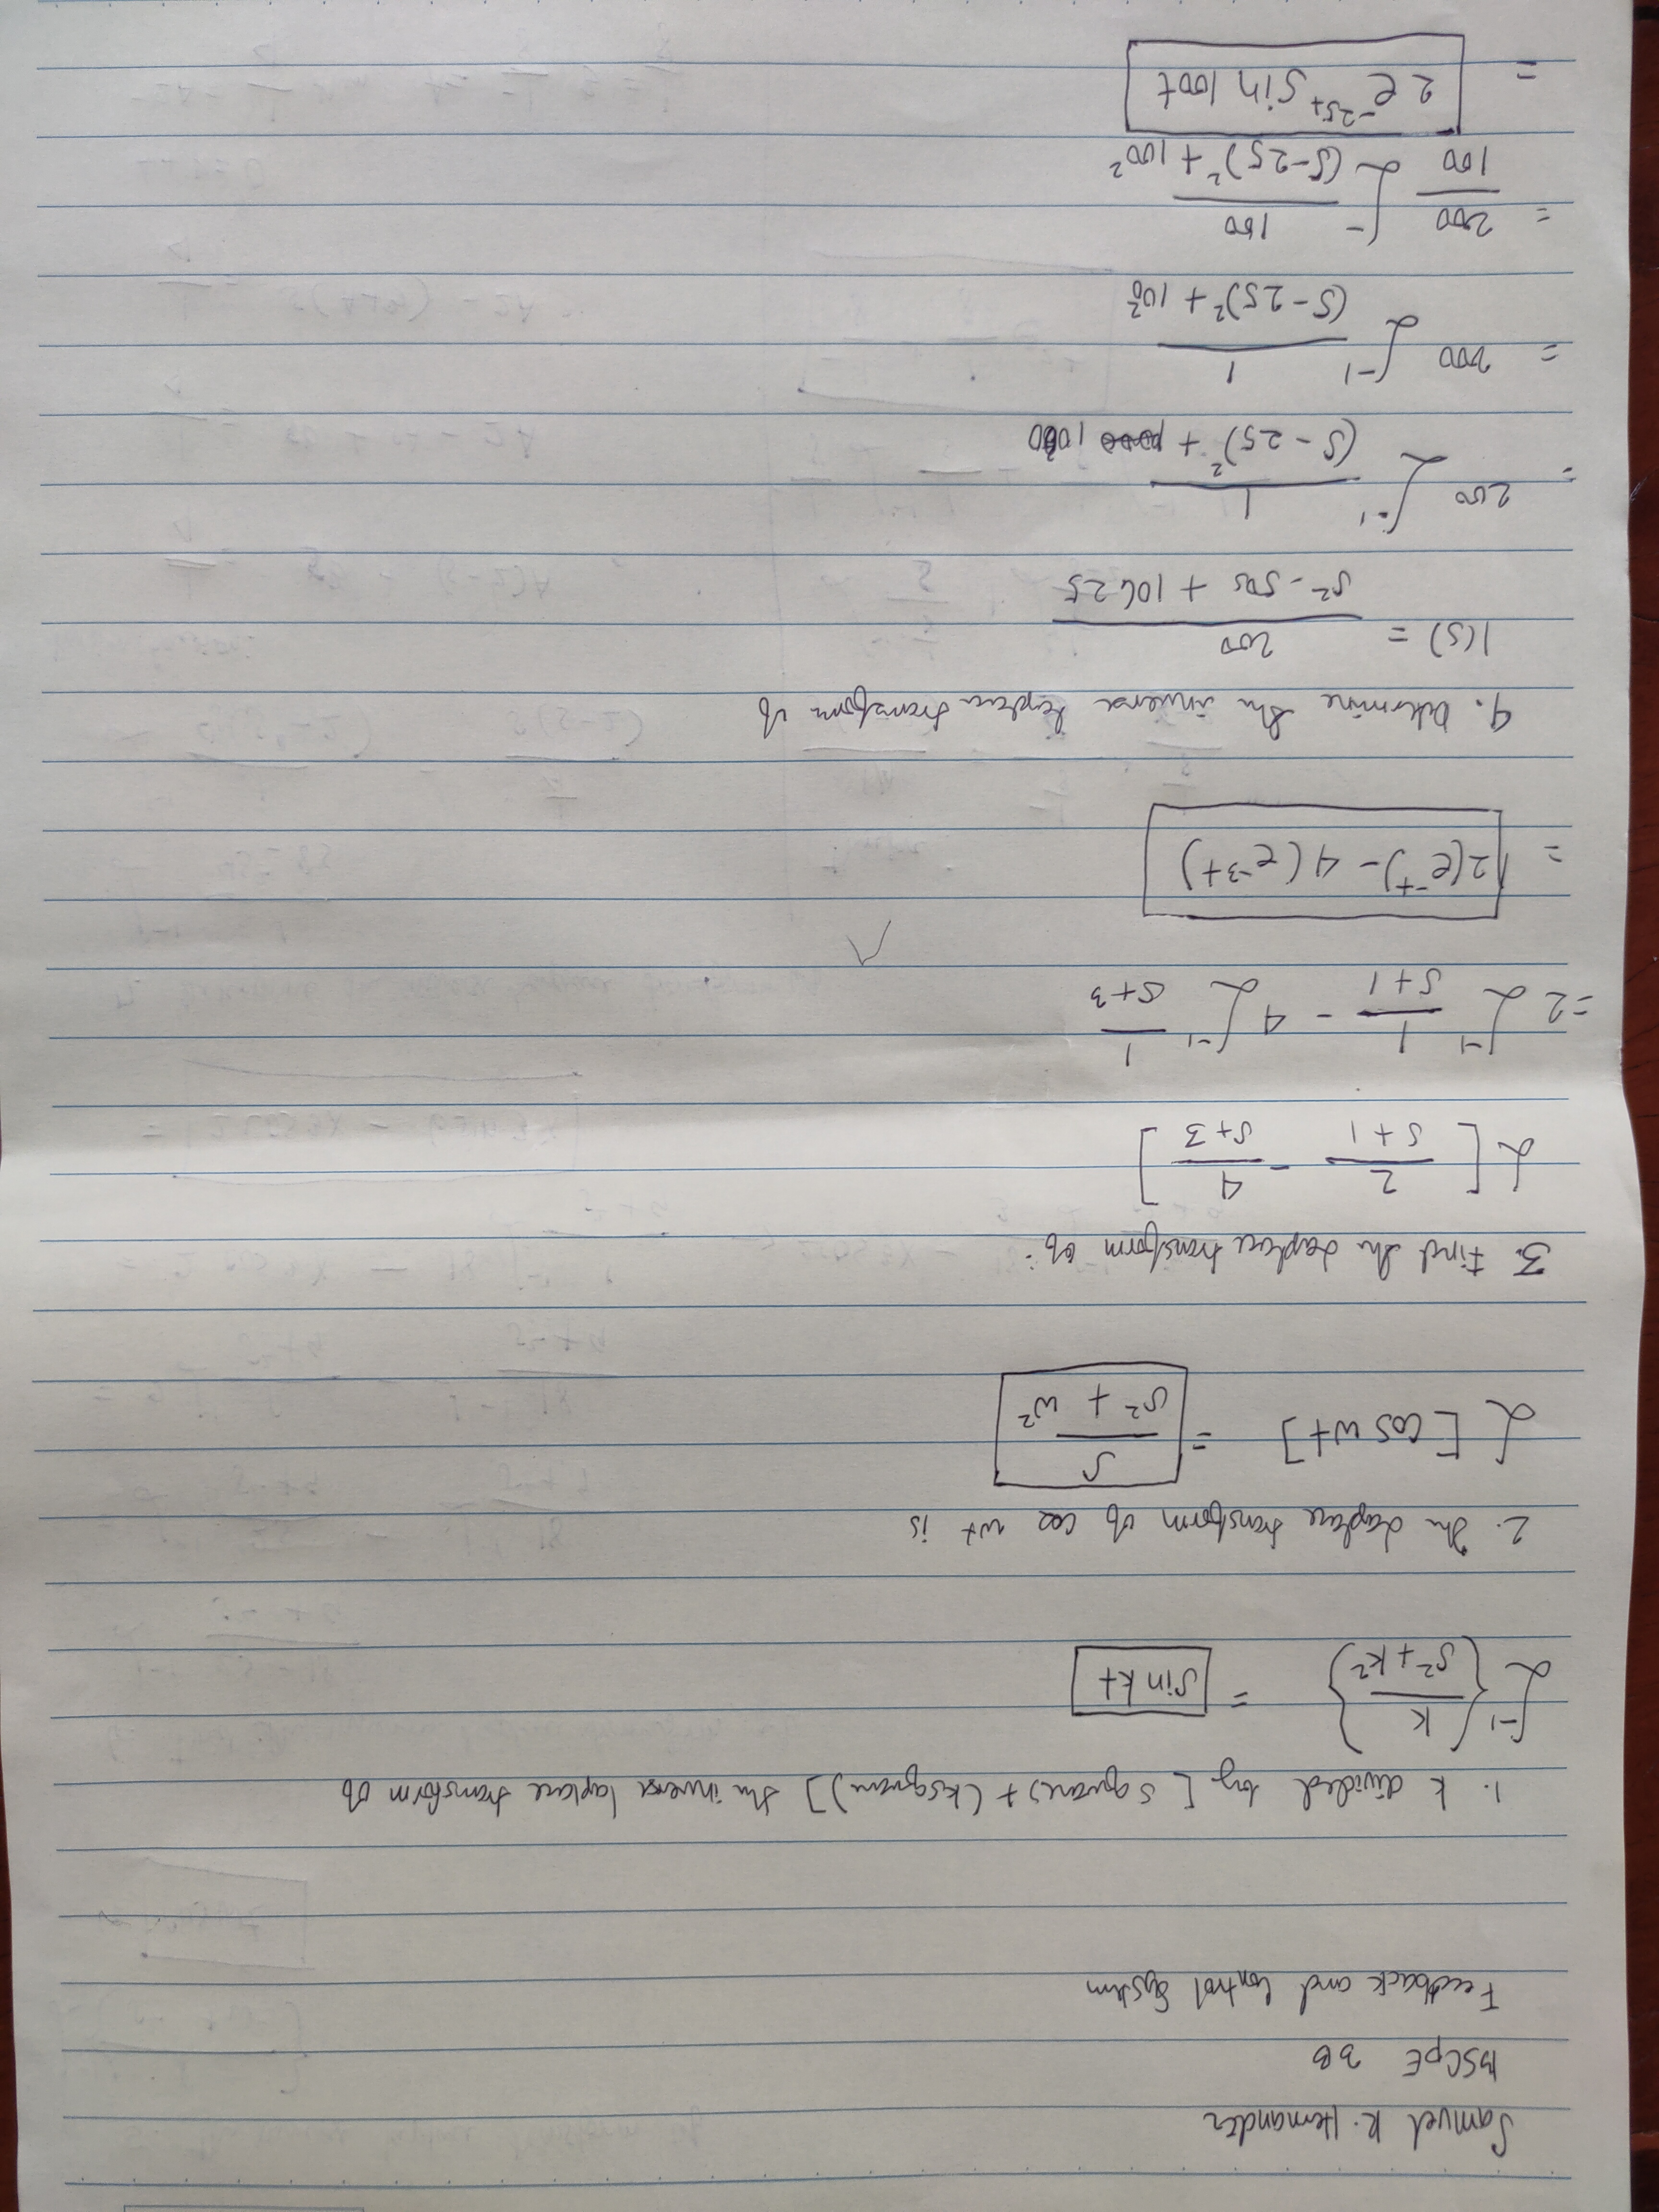 Samuel R. Hernandez
BSCpE 3B
Feedback and Control System
1. k divided by [ square) + (ksquare)] the inverse laplace transform of
ℒ⁻¹{k/(s² + k²)} = sin kt
2. The Laplace transform of cos wt is
ℒ [cos wt] = s/(s² + w²)
3. Find the Laplace transform of:
ℒ[ 2/(s+1) - 4/(s+3) ]
=2 ℒ⁻¹ 1/(s+1) - 4 ℒ⁻¹ 1/(s+3)
= 2(e⁻ᵗ) - 4(e⁻³ᵗ)
4. Determine the inverse laplace transform of
I(s) = 200/(s² - 50s + 10625)
= 200 ℒ⁻¹ 1/((s-25)² +
= 200 ℒ⁻¹ 1/((s-25)² + 100²
= 200/100 ℒ⁻ 100/((s-25)² + 100²
= 2e⁻²⁵ᵗ sin 100t